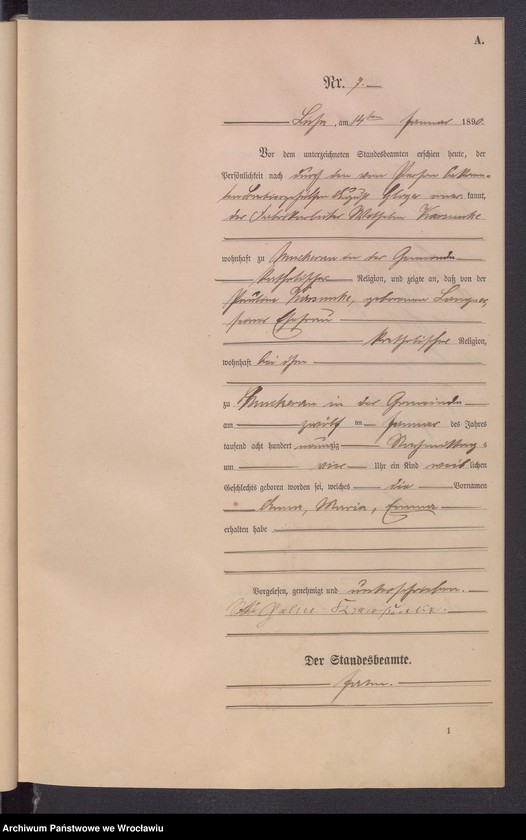 A.
Nr. 7.
Lissa, am 14ten Januar 1890.
Vor dem unterzeichneten Standesbeamten erschien heute, der
Persönlichkeit nach durch den von Person bekann-
ten August Gloger aner kannt,
der Fabrikarbeiter Wilhelm
wohnhaft zu Muckerau in der Gemeinde
katholischer Religion, und zeigte an, daß von der
Pauline geborenen Langer,
seiner Ehefrau
katholischer Religion,
wohnhaft bei ihm
zu Muckerau in der Gemeinde
am zwölf ten Januar des Jahres
tausend acht hundert neunzig Nachmittags
um vier Uhr ein Kind weib lichen
Geschlechts geboren worden sei, welches die Vornamen
Anna, Maria, Emma
erhalten habe
Vorgelesen, genehmigt und unterschrieben.
Der Standesbeamte.
1
Archiwum Państwowe we Wrocławiu